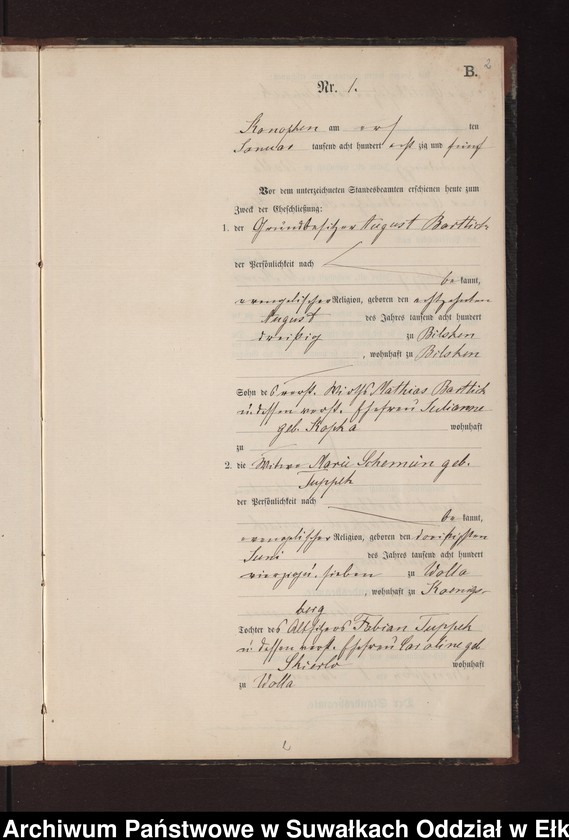 B. 2
Nr. 1.
Konopken am ten
Januar tausend acht hundert acht zig und fünf
Vor dem unterzeichneten Standesbeamten erschienen heute zum
Zweck der Eheschließung:
1. der Grundbesitzer August Bartlick
der Persönlichkeit nach
be kannt,
evangelischer Religion, geboren den achtzehnten
August des Jahres tausend acht hundert
dreißig zu Bilsken
, wohnhaft zu Bilsken
Sohn des verst. Wirths Mathias Bartlick
u. dessen verst. Ehefrau Julianne
geb. Kopka wohnhaft
zu
2. die Witwe Marie Schemun geb.
Tuppek
der Persönlichkeit nach
be kannt,
evangelischer Religion, geboren den dreißigsten
Juni des Jahres tausend acht hundert
vierzig u. sieben zu Wolla
, wohnhaft zu Koenigs-
berg
Tochter des Altsitzers Fabian Tuppek
u. dessen verst. Ehefrau Caroline geb
Skierlo wohnhaft
zu Wolla
Archiwum Państwowe w Suwałkach Oddział w Ełk